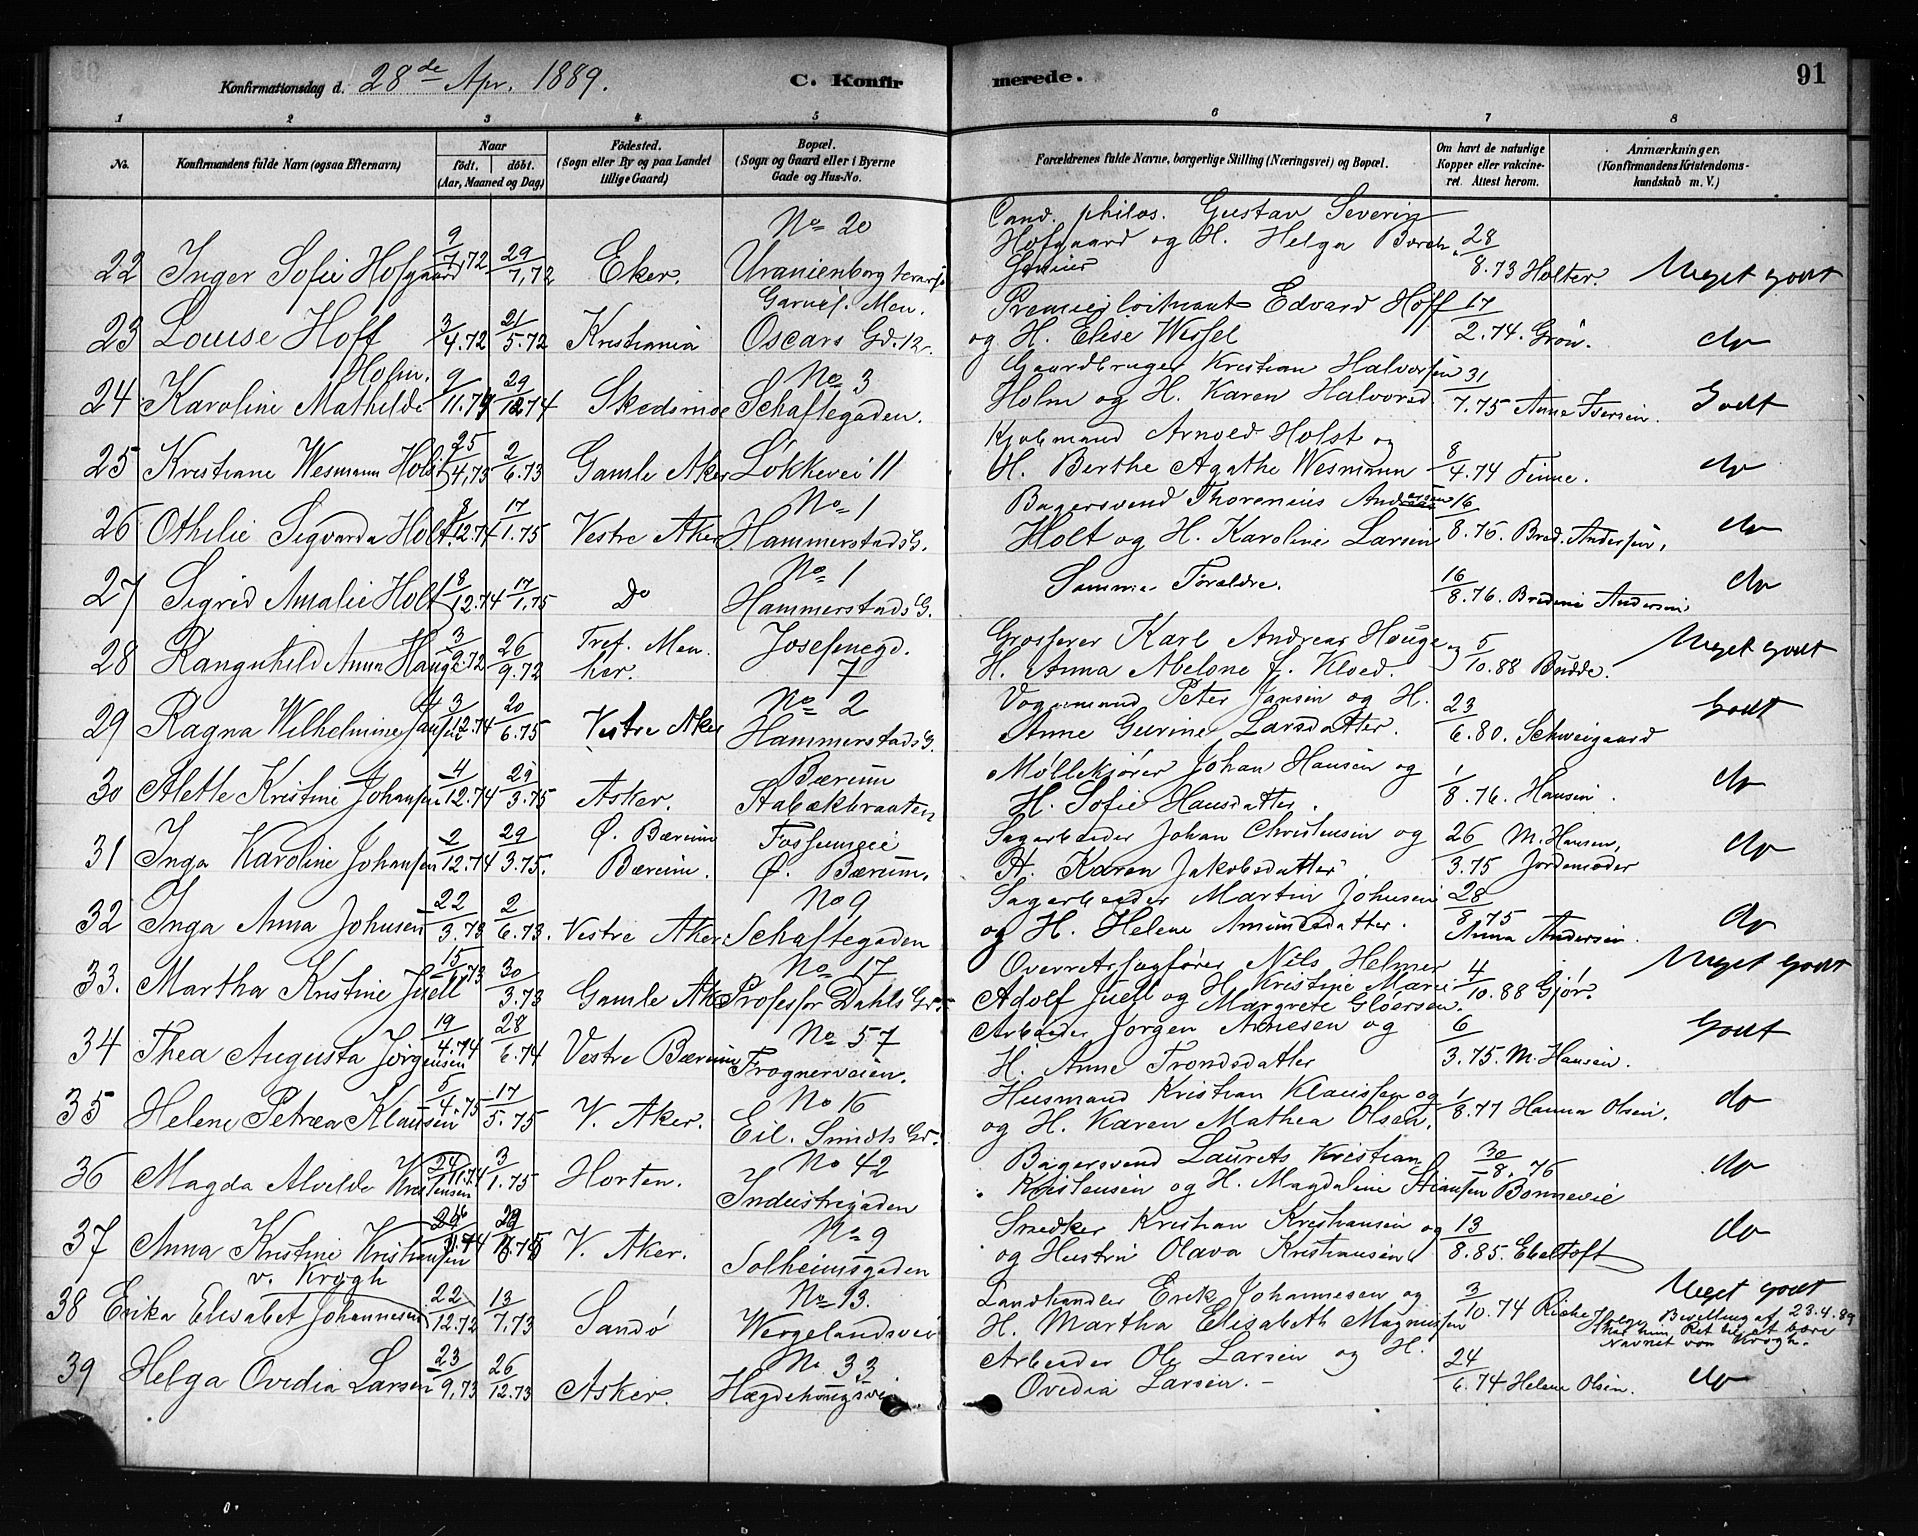 91
Konfirmationsdag d. 28de Apr. 1889.
C. Konfirmerede.
1 2 3 4 5 6 7 8
No.
Konfirmandens fulde Navn (ogsaa Efternavn)
Naar
födt. döbt.
(Aar, Maaned og Dag)
Födested.
(Sogn eller By og paa Landet
tillige Gaard)
Bopæl.
(Sogn og Gaard eller i Byerne
Gade og Hus-No.
Forældrenes fulde Navne, borgerlige Stilling (Næringsvei) og Bopæl.
Om havt de naturlige
Kopper eller vakcine-
ret. Attest herom.
Anmærkninger.
(Konfirmandens Kristendoms-
kundskab m. V.)
No 20 Cand. philos. Gustav Severin
22 Inger Sofie Hofgaard 9/7.72 29/7.72 Eker. Uranienborg Hofgaard og H. Helga 28/8.73 Holter. Meget godt
23 Louise Hoff 3/4.72 21/5.72 Kristiania Oscars Gd. 12. Premierløitnant Edvard Hoff
og H. Elise Wessel 17/2.74. Grön. do
Holm. No 3 Gaardbruger Kristian Halvorsen
24 Karoline Mathilde 9/11.74 29/12.74 Skedsmoe Schaftegaden. Holm og H. Karen Halvorsd. 31/7.75 Anne Iversen. Godt
25 Kristiane Wesmann Holst 25/4.73 2/6.73 Gamle Aker Lökkevei 11 Kjøbmand Arnold Holst og
H. Berthe Agathe Wesmann 8/4.74 Finne. do
No 1 Bagersvend Thorenius Andersen
26 Othilie Sigvarda Holt. 8/12.74 17/1.75 Vestre Aker Hammerstads G. Holt og H. Karoline Larsen 16/8.76. Bred. Andersen. do
No 1
27 Sigrid Amalie Holt 8/12.74 17/1.75 Do Hammerstads G. Samme Forældre. 16/8.76. Andersen do
28 Rangnhild Anna Hauge 3/9.72 26/9.72 Tref. Men. her. Josefinegd. 7 Grosserer Karl Andreas Houge og
H. Anna Abelone f. Kloed. 5/10.88 Budde. Meget godt
No 2 Vognmand Peter Jansen og H.
29 Ragna Wilhelmine Jansen 3/12.74 20/6.75 Vestre Aker Hammerstads G. Anne Gurine Larsdatter. 23/6.80. Schweigaard Godt
30 Alette Kristine Johansen 4/12.74 29/3.75 Asker. Bærum Stabækbraaten Møllekjører Johan Hansen og
H. Sofie Hansdatter. 1/8.76. Hansen. do
31 Inga Karoline Johansen 2/12.74 29/3.75. Ø. Bærum Bærum. Fossumveie Ø. Bærum. Sagarbeider Johan Christensen og
H. Karen Jakobsdatter. 26/3.75 M. Hansen, Jordemoder do
No 9 Sagarbeider Martin Johnsen
32 Inga Anna Johnsen 22/3.73 2/6.73. Vestre Aker Schaftegaden og H. Helene Amundsdatter. 28/8.75 Anna Andersen. do
No 17 Overretssagfører Nils Helmer
33. Martha Kristine Juell 15/1.73 30/3.73 Gamle Ak. Professor Dahls G. Adolf Juell og H. Kristine Marie
Margrete Gløersen. 4/10.88 Gjör. Meget godt
No 57 Arbeider Jørgen Arnesen og
34 Thea Augusta Jørgensen 19/4.74 28/6.74 Vestre Bærum Frognerveien. H. Anne Trondsdatter 6/3.75 M. Hansen. Godt
No 16 Husmand Kristian Klausen og
35 Helene Petrea Klausen 5/4.75 17/5.75 V. Aker. Eil. Sundts G. og H. Karen Mathea Olsen. 1/8.77 Hanna Olsen. do
No 42 Bagersvend Laurets Kristian
36 Magda Alvilde Kristensen 24/11.74 3/1.75 Horten. Industrigaden Kristensen og H. Magdaline 30/8.76 Bonnevie do
No 9 Snedker Kristian Kristiansen og
37 Anna Kristine Kristiansen V. Aker. Solheimsgaden og Hustru Olava Kristiansen 13/8.85. Ebeltoft do
v. Krogh
No 13. Landhandler Erik Johannesen og
38 Erika Elisabet Johannesen 22/12.72 13/7.73 Sandö Wergelandsvei H. Martha Elisabeth Magnussen 3/10.74 Meget godt
Bevilling af 23.4.89
har hun Ret til at bære
Navnet von Krogh.
No 33 Arbeider Ole Larsen og H.
39 Helga Ovidia Larsen 23/9.73 26/12.73 Asker. Hægdehougsvei Ovidia Larsen. 24/6.74 Helene Olsen. do